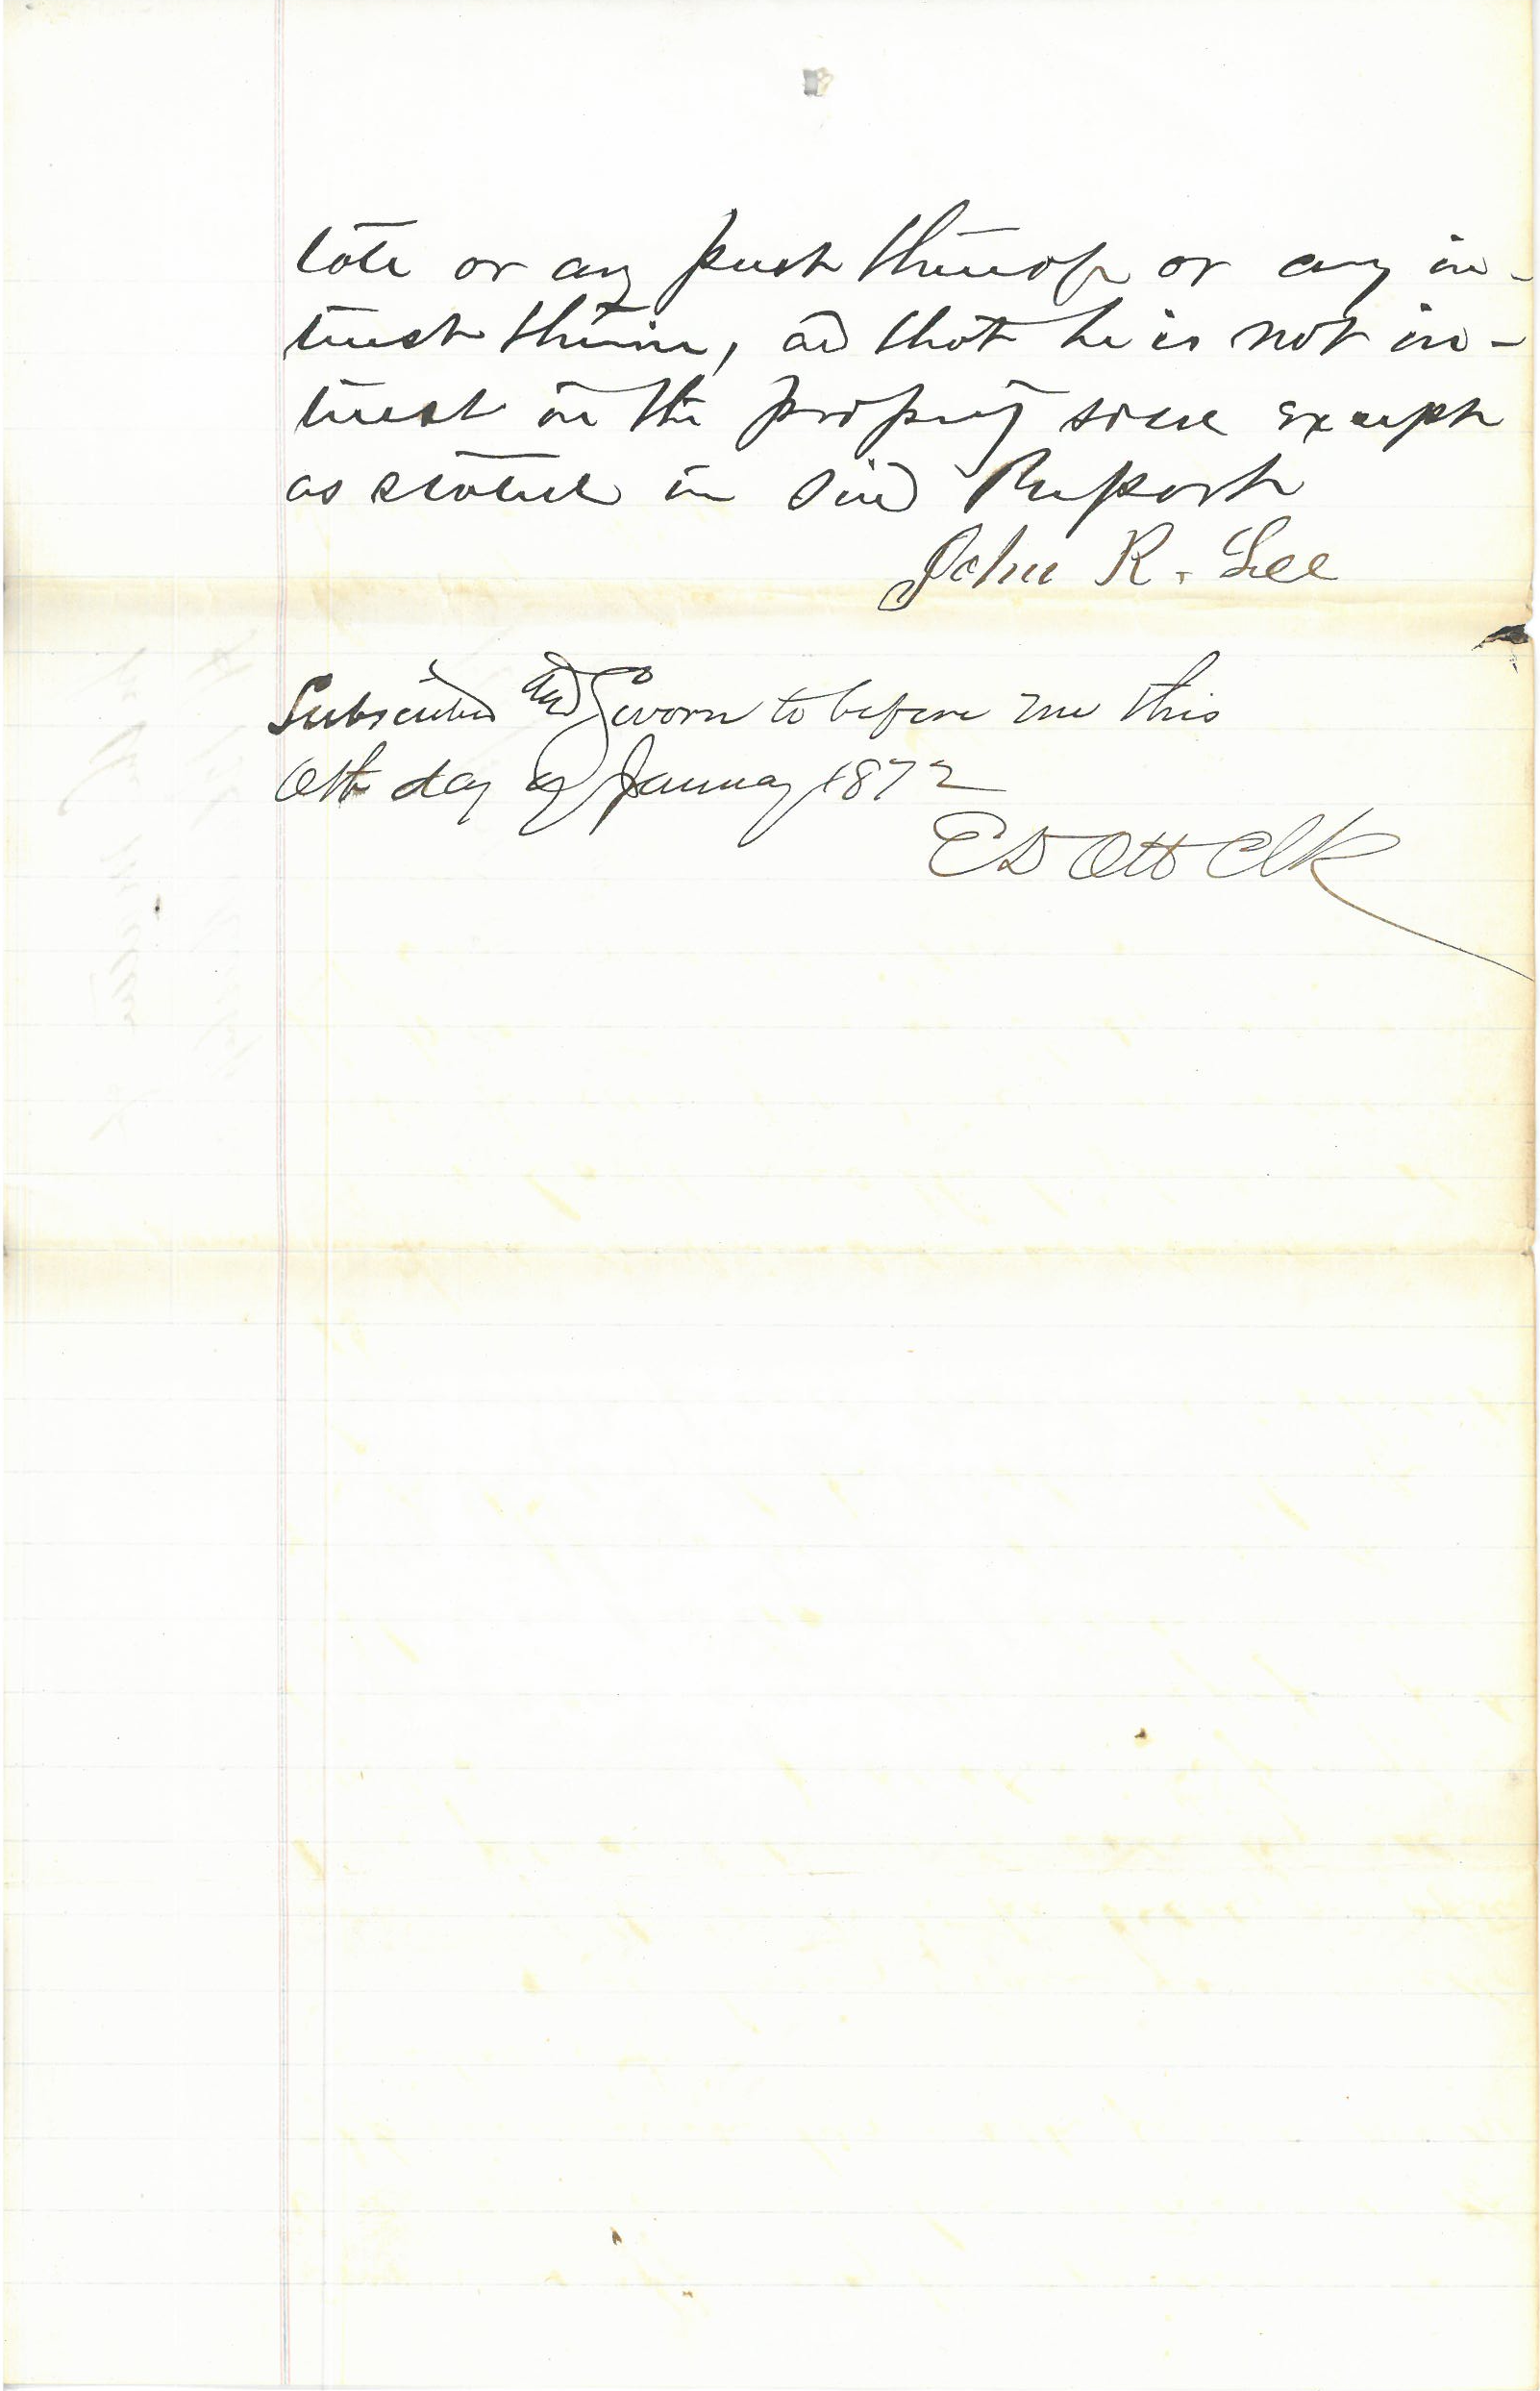 tate or any part thereof or any in-
terest therein, and that he is not in-
terest in the property since except
as stated in said Report
John R. Lee
Subscribed and Sworn to before me this
day of January 1872
E D Ott Clk